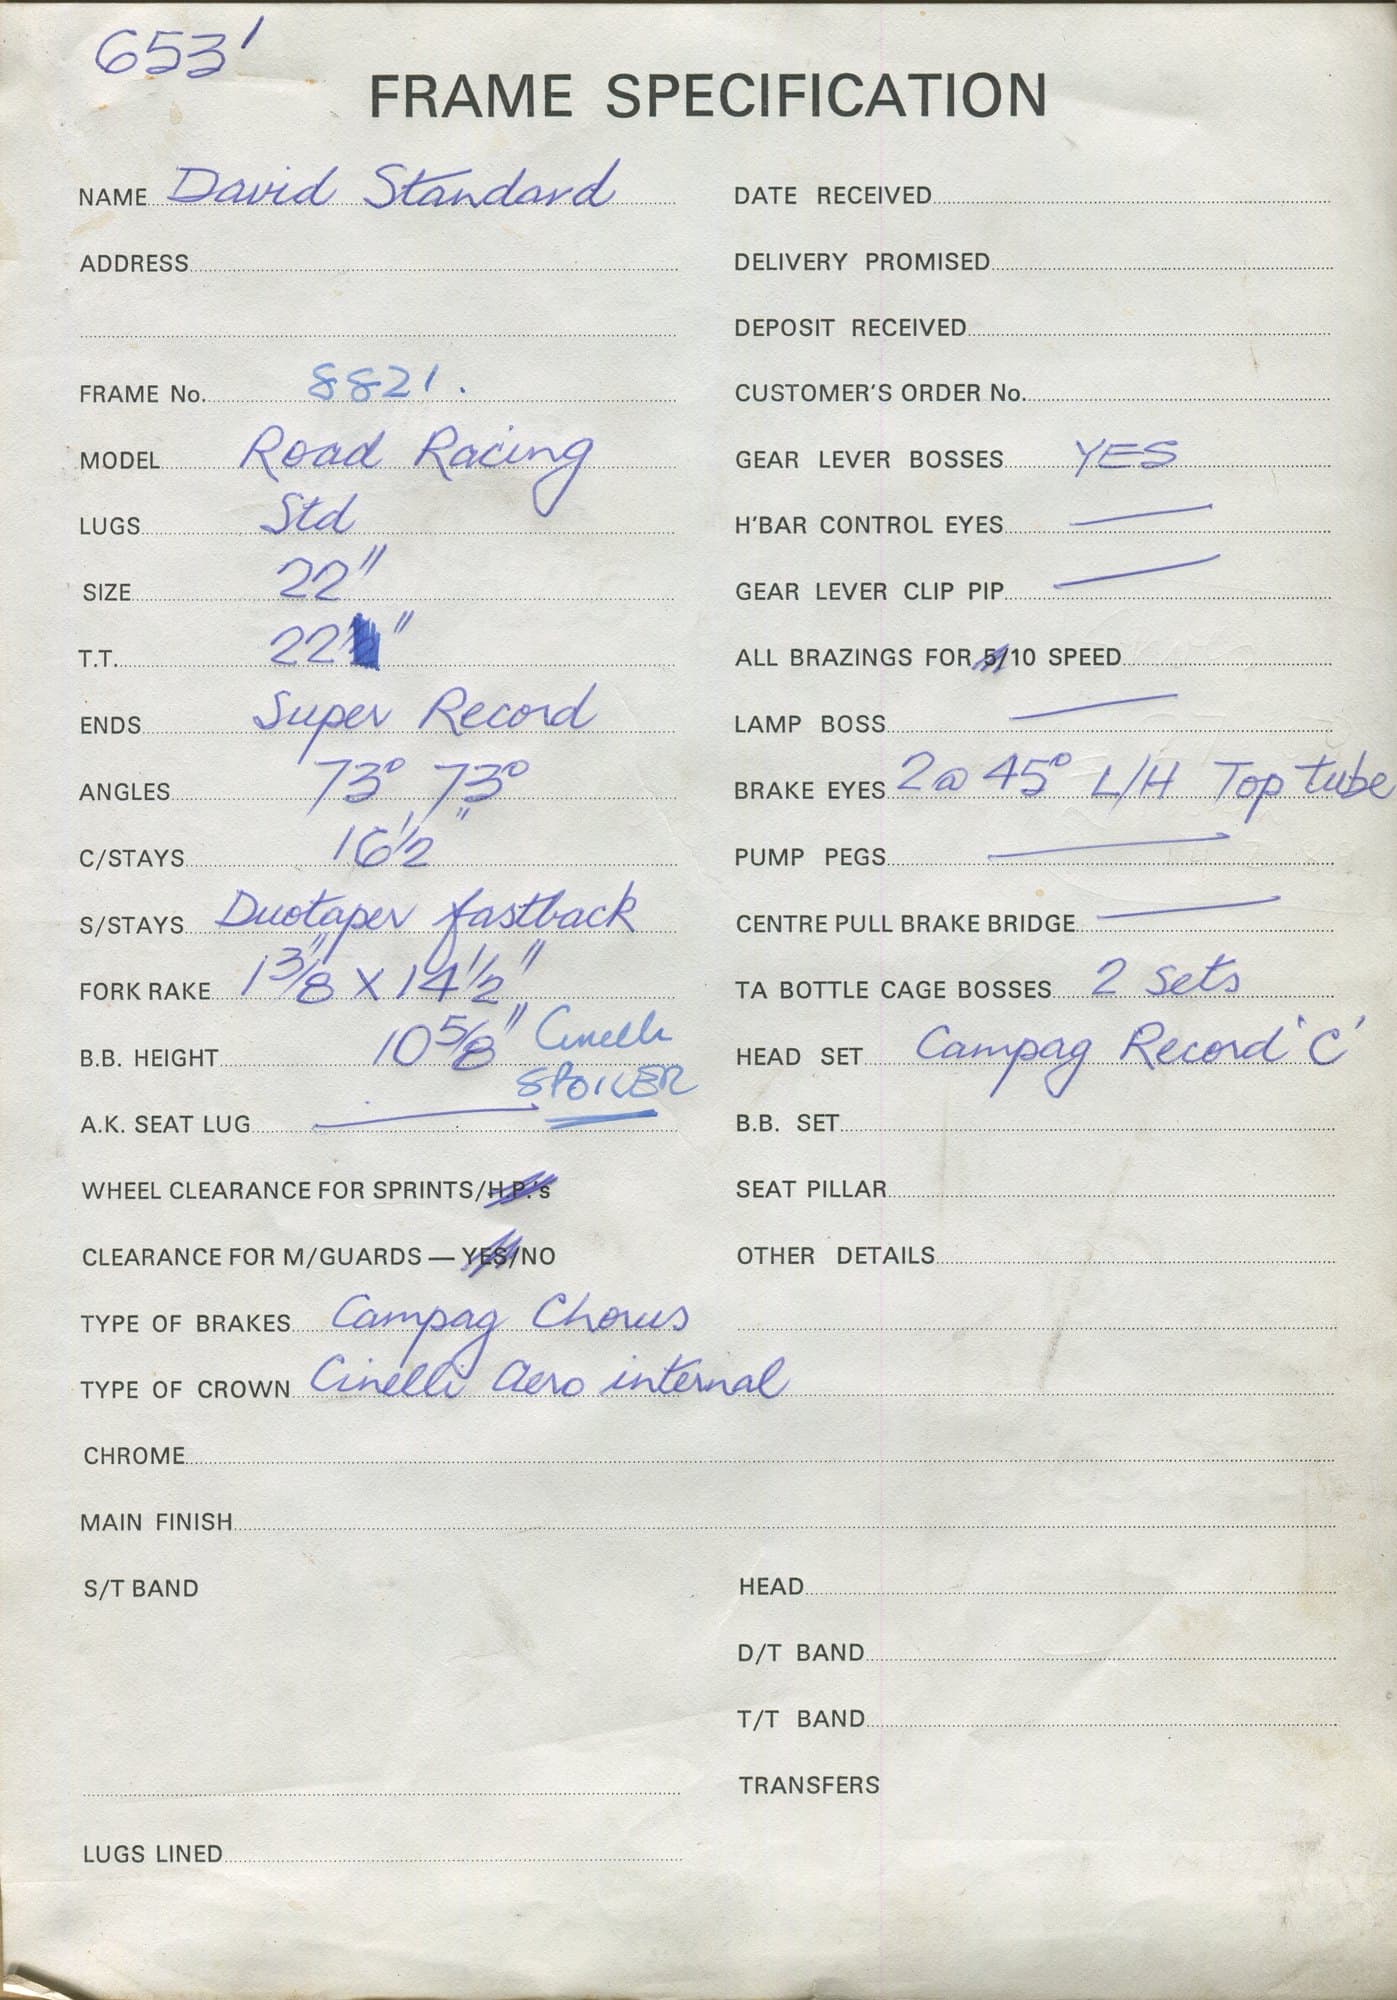 653'
FRAME SPECIFICATION
NAME David Standard
ADDRESS
FRAME No. 8821.
MODEL Road Racing
LUGS Std
SIZE 22"
T.T. 22 "
ENDS Super Record
ANGLES 73° 73°
C/STAYS 16½"
S/STAYS Duotaper fastback
FORK RAKE 1 3/8" X 14 1/2"
B.B. HEIGHT 10 5/8" Cinelli
SPOILER
A.K. SEAT LUG —
WHEEL CLEARANCE FOR SPRINTS/H.P.'s
CLEARANCE FOR M/GUARDS — YES/NO
TYPE OF BRAKES Campag Chorus
TYPE OF CROWN Cinelli Aero internal
CHROME
MAIN FINISH
S/T BAND
LUGS LINED
DATE RECEIVED
DELIVERY PROMISED
DEPOSIT RECEIVED
CUSTOMER'S ORDER No.
GEAR LEVER BOSSES YES
H'BAR CONTROL EYES —
GEAR LEVER CLIP PIP —
ALL BRAZINGS FOR 5/10 SPEED
LAMP BOSS —
BRAKE EYES 2 @ 45° L/H Top tube
PUMP PEGS —
CENTRE PULL BRAKE BRIDGE —
TA BOTTLE CAGE BOSSES 2 sets
HEAD SET Campag Record 'C'
B.B. SET
SEAT PILLAR
OTHER DETAILS
HEAD
D/T BAND
T/T BAND
TRANSFERS